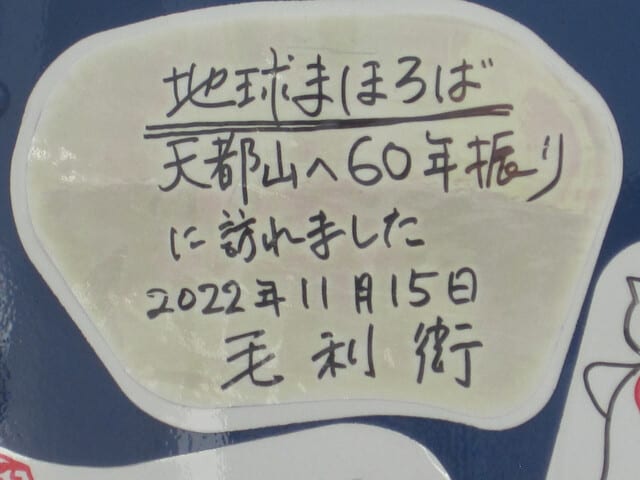 地球まほろば
天都山へ60年振り
に訪れました
2022年11月15日
毛利衛